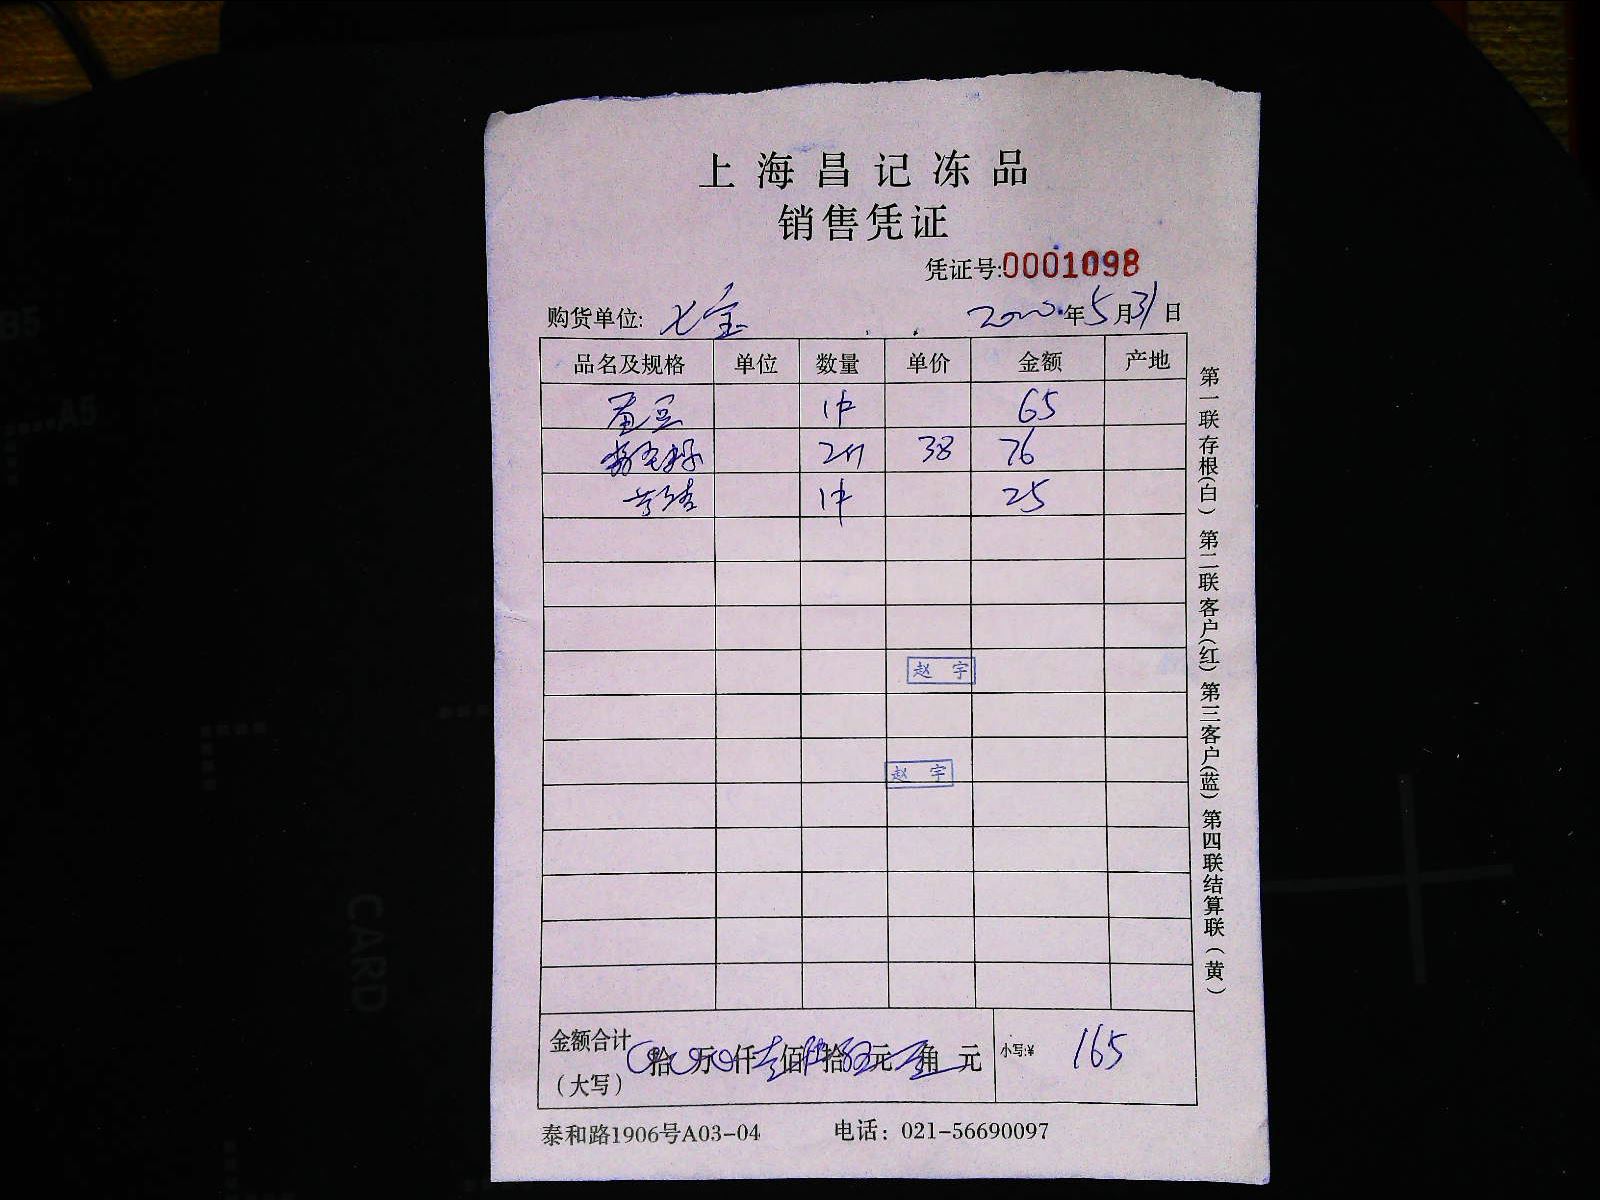 上海昌记冻品
销售凭证
凭证号:0001098
购货单位: 七宝 2020年5月31日
品名及规格 单位 数量 单价 金额 产地
豆 1件 65
2件 38 76
1件 25
赵宇
赵宇
金额合计 拾万仟壹佰陆拾伍元角元 小写:¥ 165
（大写）
泰和路1906号A03-04 电话：021-56690097
第一联存根(白) 第二联客户(红) 第三客户(蓝) 第四联结算联(黄)
B5
A5
CARD